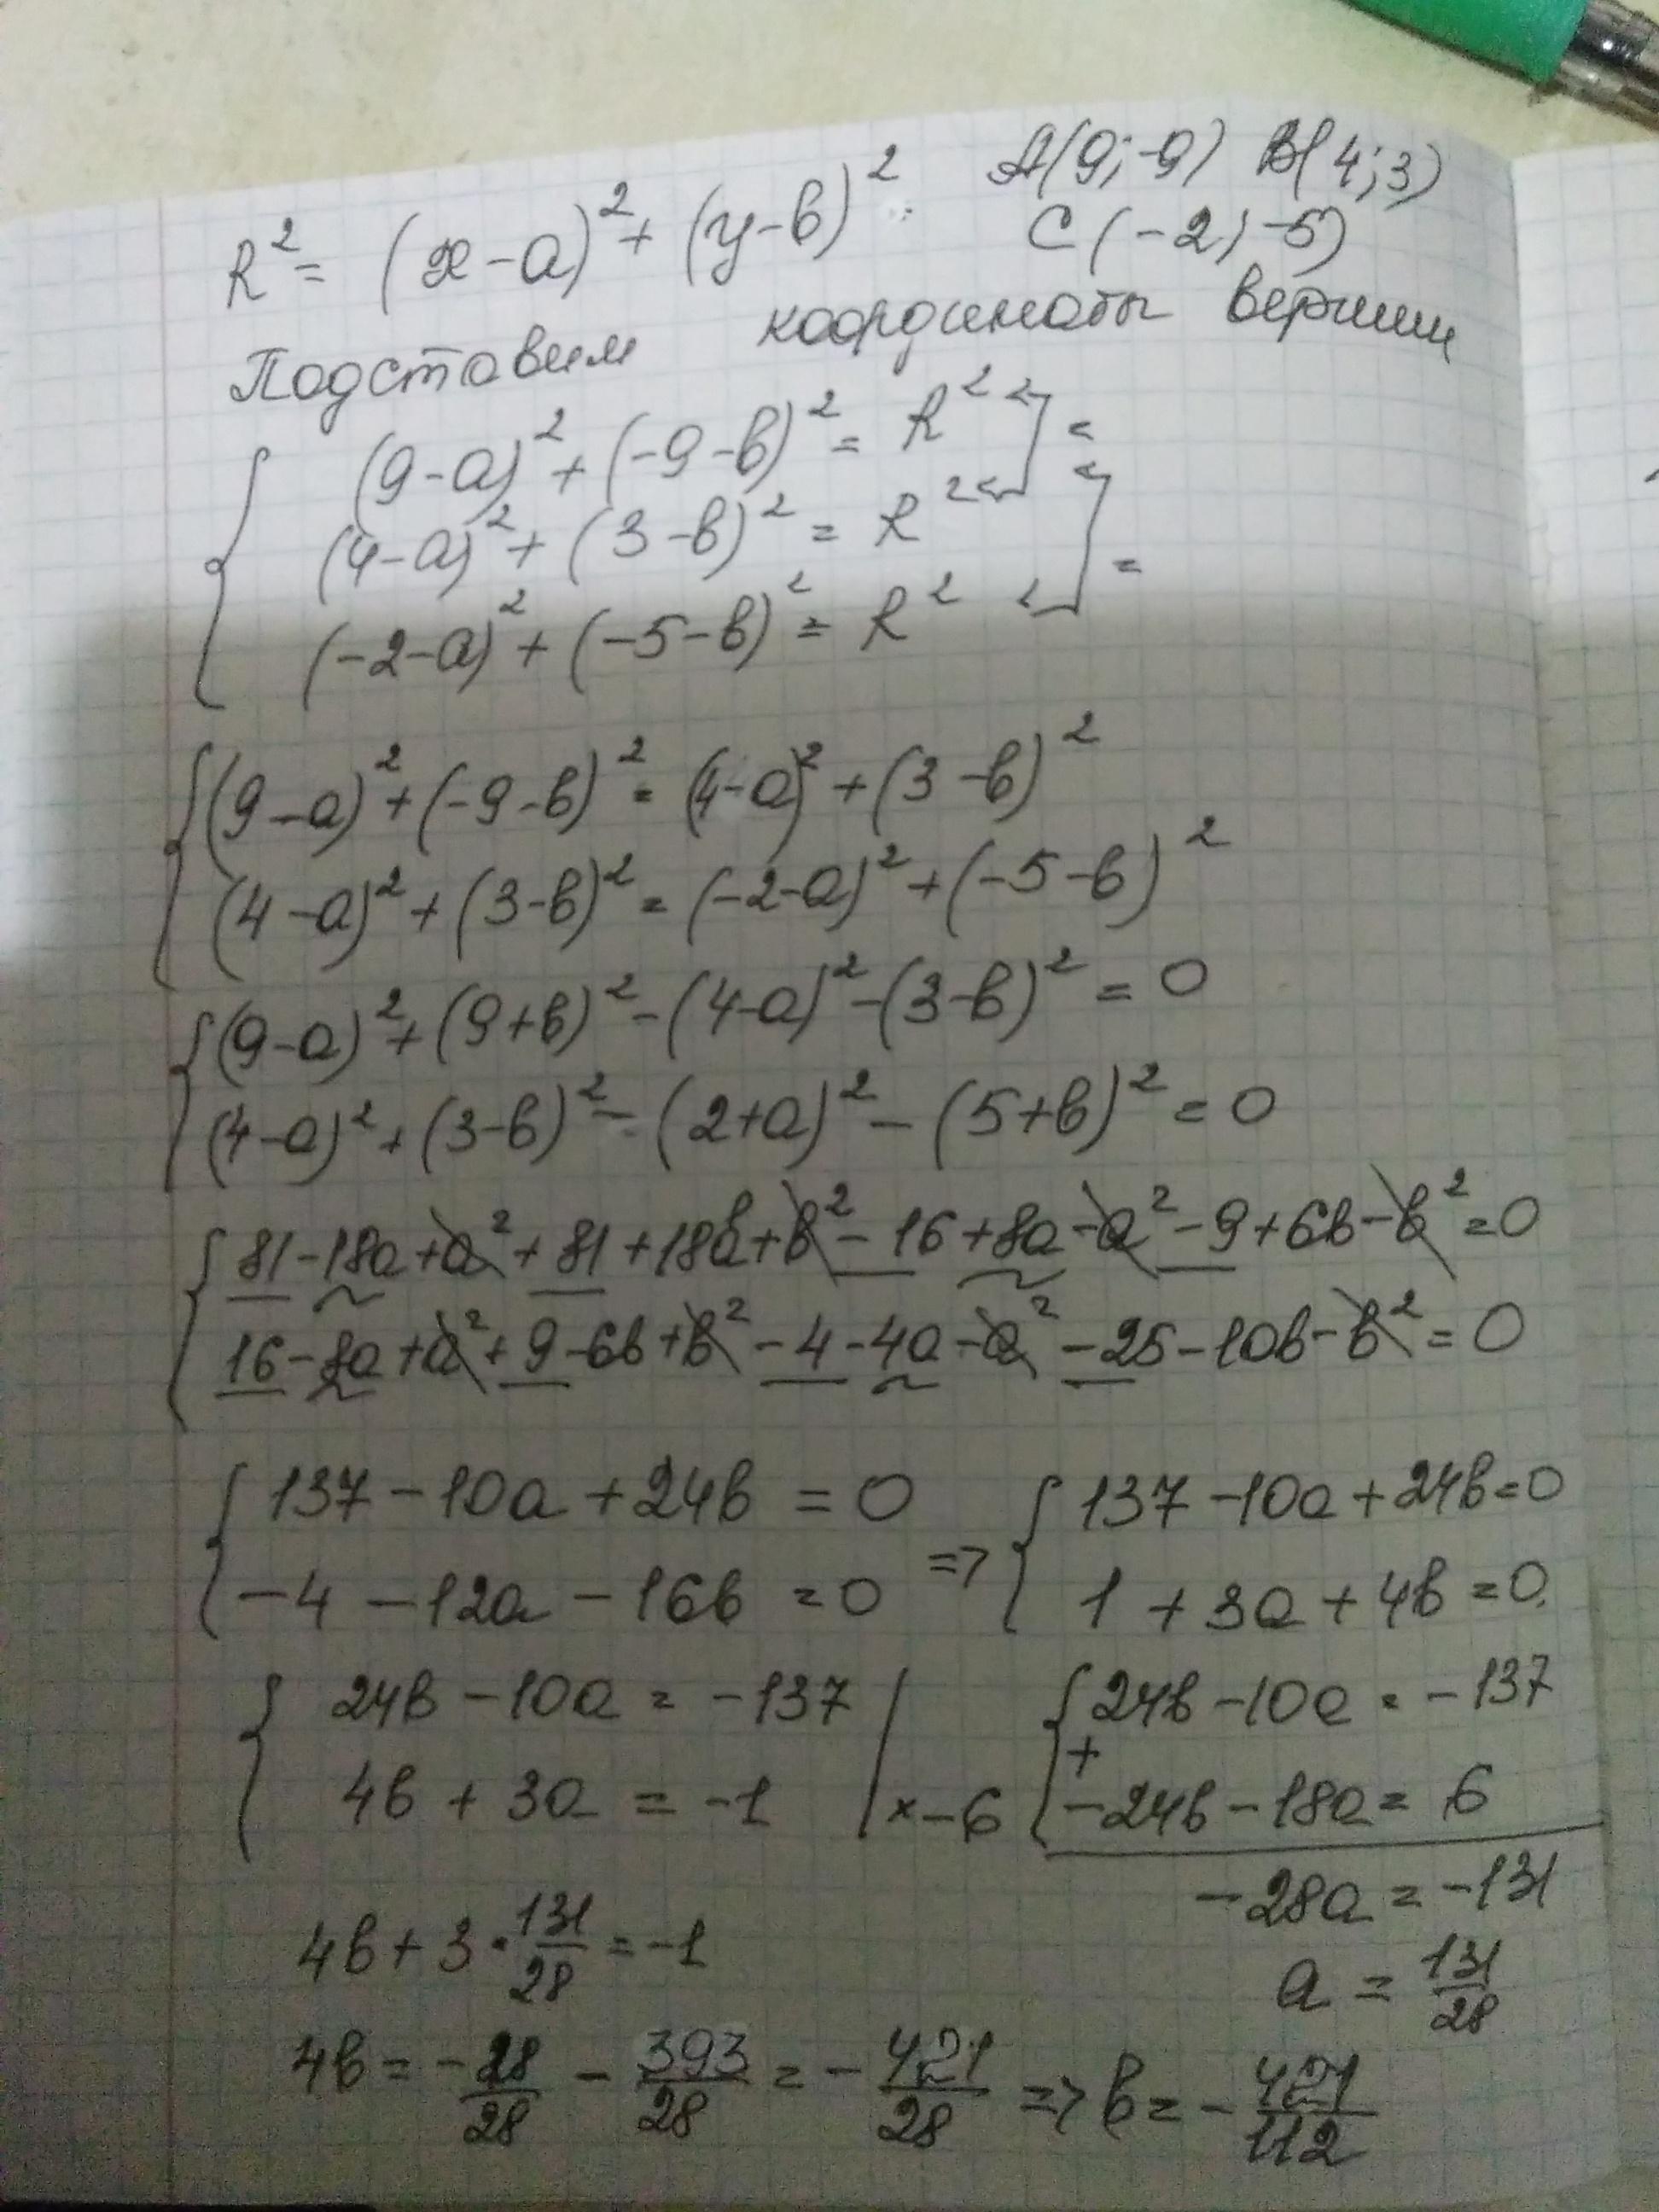 R² = (x-a)² + (y-b)² A(9;-9) B(4;3)
C(-2;-5)
Подставим координаты вершин
(9-a)² + (-9-b)² = R²
(4-a)² + (3-b)² = R²
(-2-a)² + (-5-b)² = R²
(9-a)² + (-9-b)² = (4-a)² + (3-b)²
(4-a)² + (3-b)² = (-2-a)² + (-5-b)²
(9-a)² + (9+b)² - (4-a)² - (3-b)² = 0
(4-a)² + (3-b)² - (2+a)² - (5+b)² = 0
81-18a+a²+81+18b+b²-16+8a-a²-9+6b-b²=0
16-8a+a²+9-6b+b²-4-4a-a²-25-10b-b²=0
137-10a+24b=0 => 137-10a+24b=0
-4-12a-16b=0 1+3a+4b=0
24b-10a=-137 24b-10a=-137
4b+3a=-1 |×-6 + -24b-18a=6
-28a=-131
4b+3·131/28=-1 a=131/28
4b=-28/28-393/28=-421/28 => b=-421/112